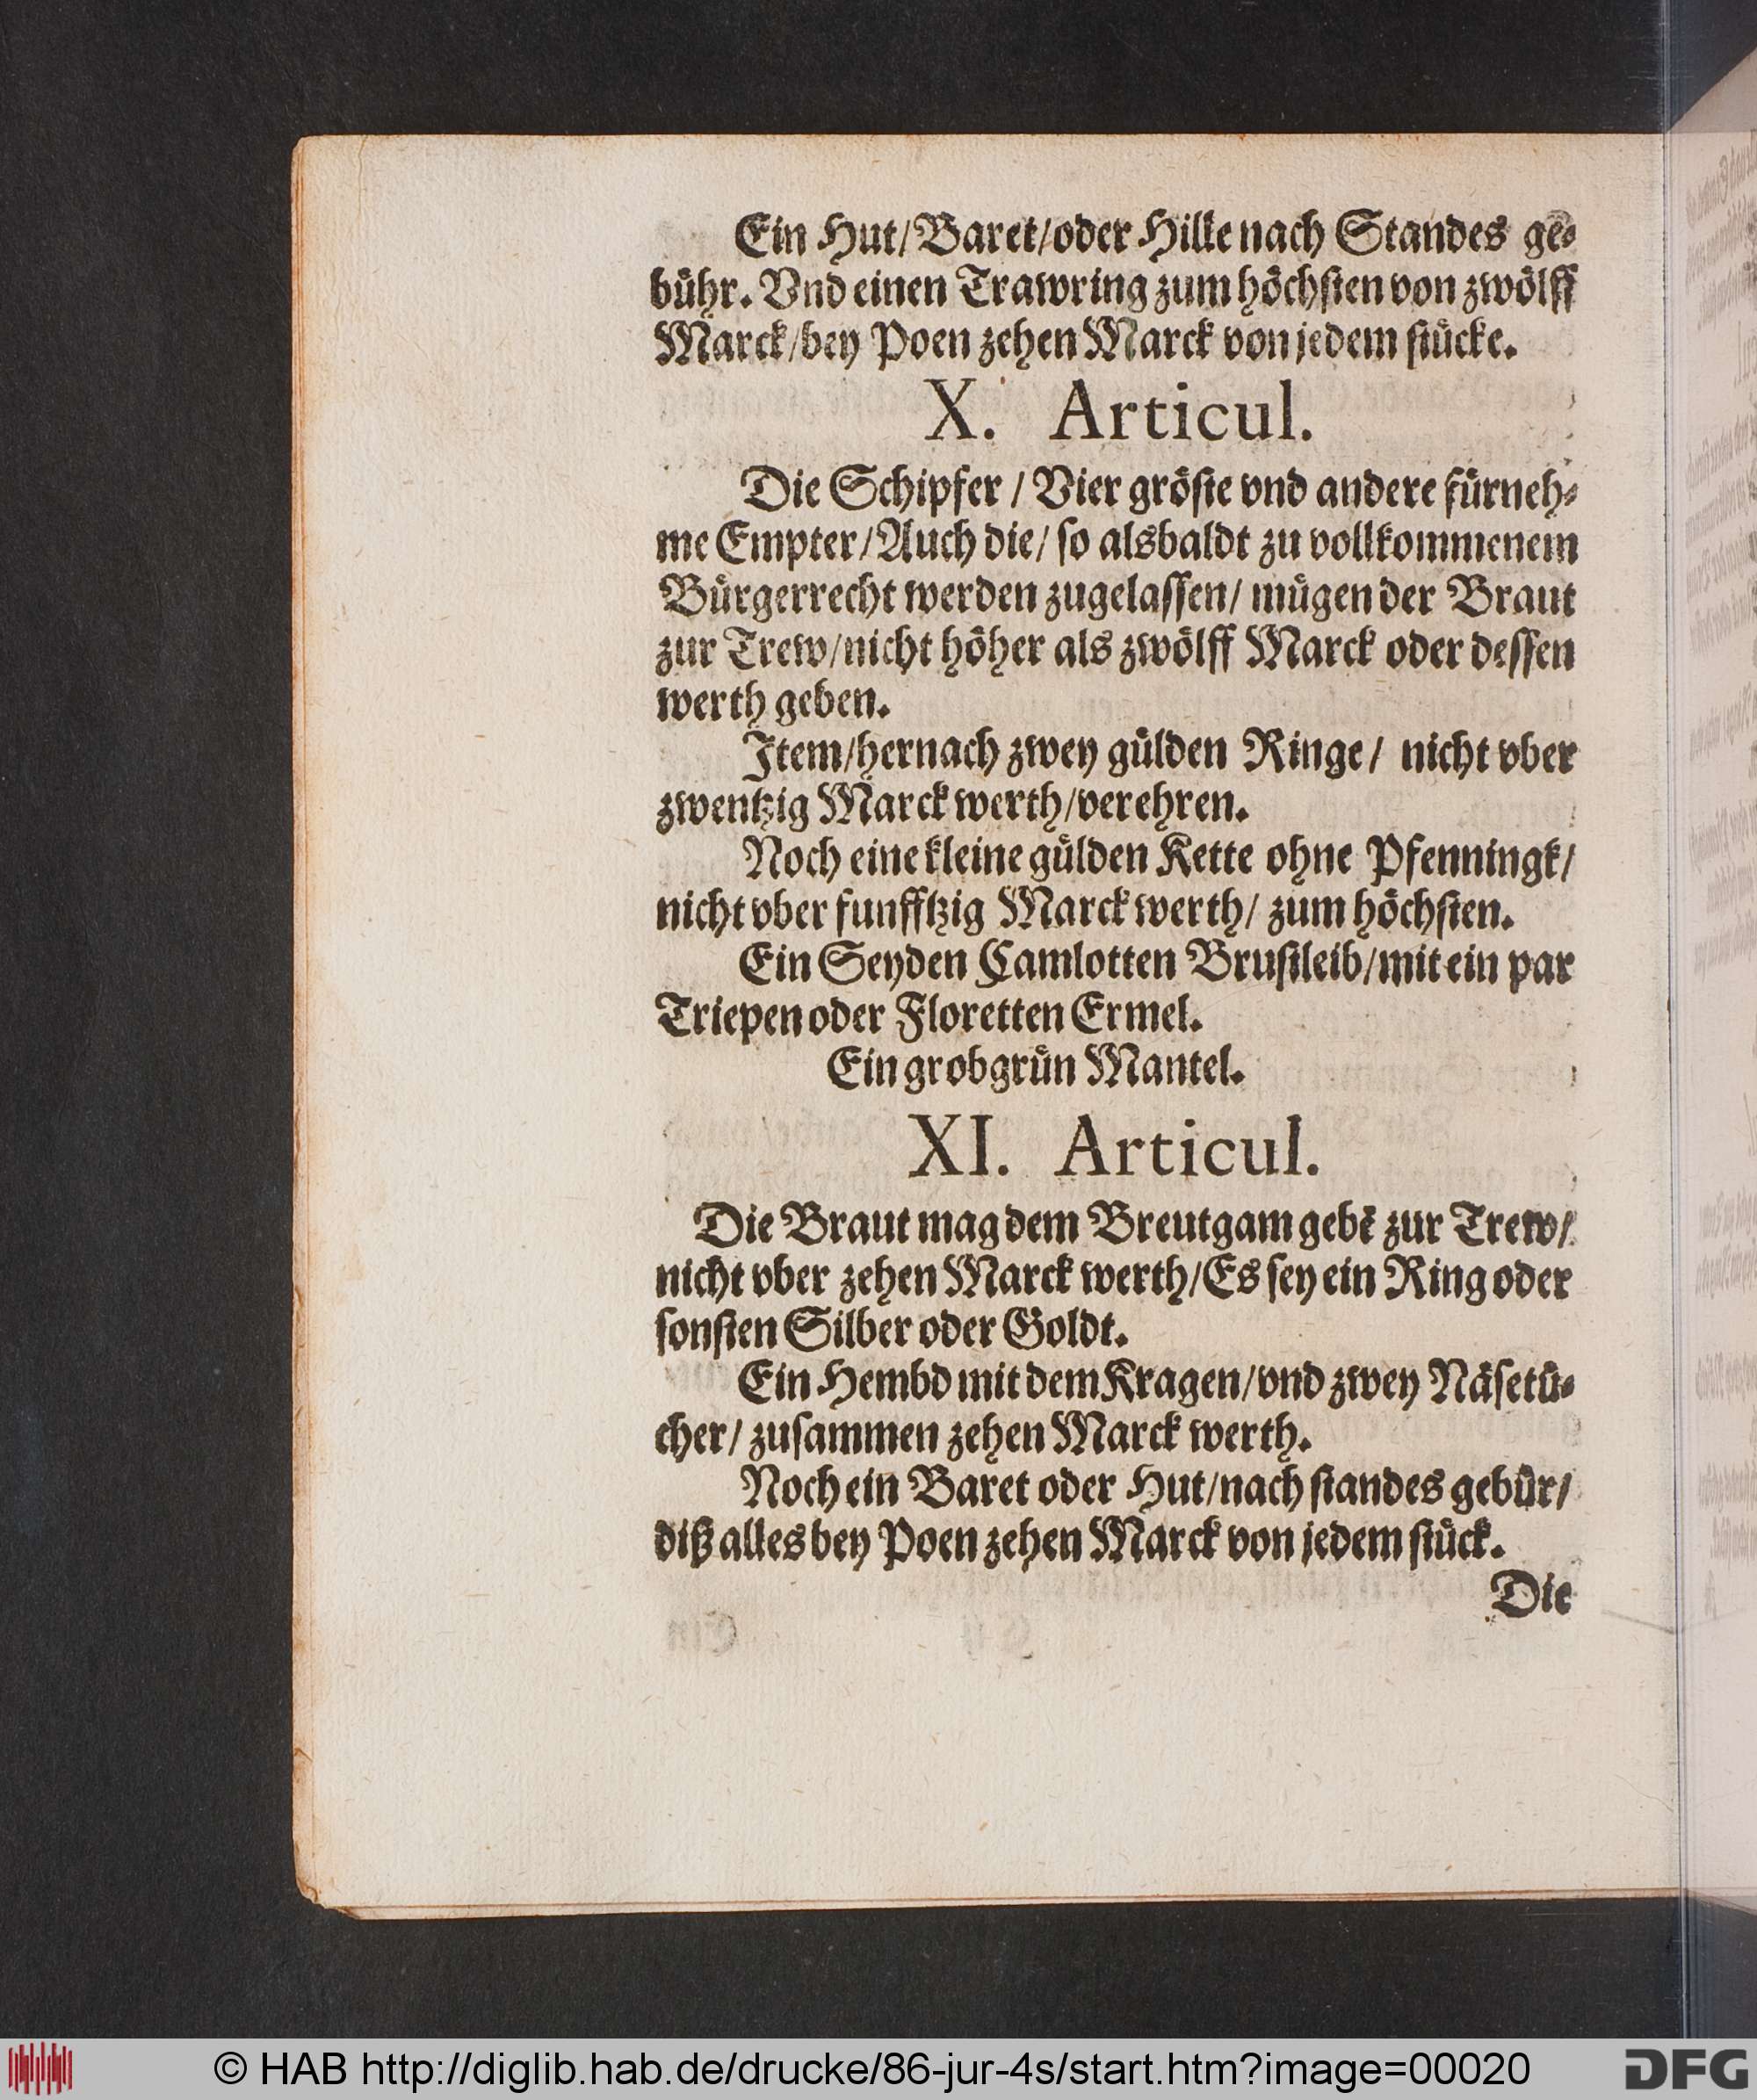 Ein Hut/Baret/oder Hilke nach Standes ge-
buͤhr. Vnd einen Trawring zum hoͤchſten von zwoͤlff
Marck/bey Poen zehen Marck von jedem ſtuͤcke.
X. Articul.
Die Schipfer / Vier groͤſte vnd andere fuͤrneh-
me Empter/Auch die/ ſo alsbaldt zu vollkommenem
Buͤrgerrecht werden zugelaſſen/ muͤgen der Braut
zur Trew/nicht hoͤher als zwoͤlff Marck oder deſſen
werth geben.
Item/hernach zwey guͤlden Ringe/ nicht vber
zwentzig Marck werth/verehren.
Noch eine kleine guͤlden Kette ohne Pfenningk/
nicht vber funfftzig Marck werth/ zum hoͤchſten.
Ein Seyden Camlotten Bruſtleib/mit ein par
Triepen oder Floretten Ermel.
Ein grobgruͤn Mantel.
XI. Articul.
Die Braut mag dem Breutgam gebē zur Trew/
nicht vber zehen Marck werth/Es ſey ein Ring oder
ſonſten Silber oder Goldt.
Ein Hembd mit dem Kragen/vnd zwey Naͤſetuͤ-
cher/ zuſammen zehen Marck werth.
Noch ein Baret oder Hut/nach ſtandes gebuͤr/
diß alles bey Poen zehen Marck von jedem ſtuͤck.
Die
© HAB http://diglib.hab.de/drucke/86-jur-4s/start.htm?image=00020
DFG